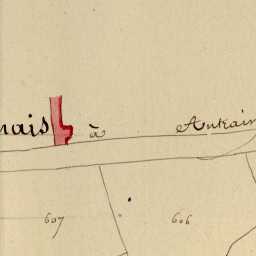 nais à Antrain
607 606